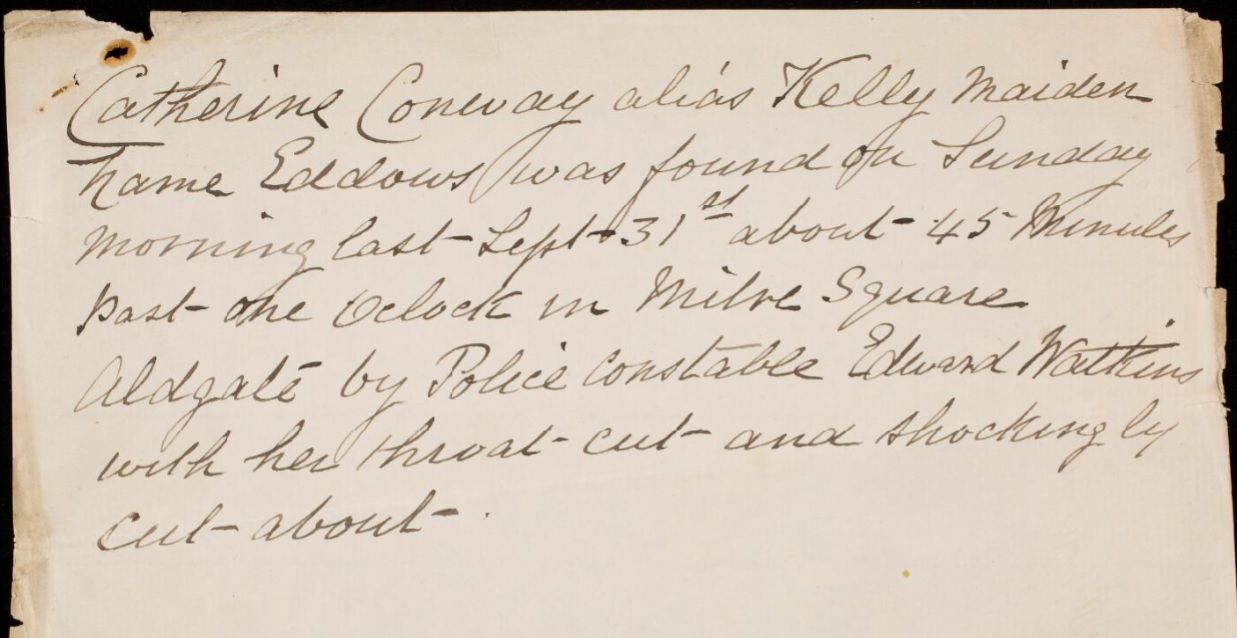 Catherine Conway alias Kelly maiden
name Eddows was found on Sunday
morning last Sept 31st about 45 Minutes
past one Oclock in Mitre Square
Aldgate by Police Constable Edward Watkins
with her throat cut and shockingly
cut about.